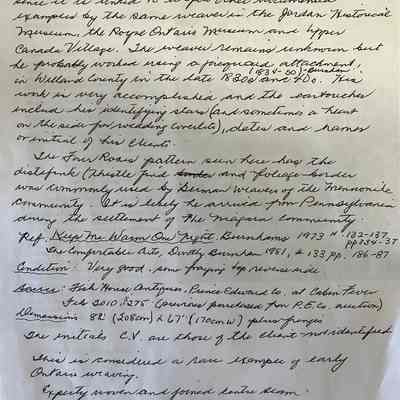 since it is linked to a few other documented
examples by the same weaver in the Jordan Historical
Museum, the Royal Ontario Museum and Upper
Canada Village. The weaver remains unknown but
he probably worked using a jacquard attachment,
(1834-50)-Burnham
in Welland County in the late 1830s and 40s. This
work is very accomplished and the cartouches
include his identifying stars (and sometimes a heart
on the side for wedding coverlets), dates and names
or initial of his clients.
The Four Roses pattern seen here has the
distelfink (Thistle find and foliage border
was commonly used by German weavers of the Mennonite
community. It is likely he arrived from Pennsylvania
during the settlement of the Niagara community.
Ref. Keep Me Warm One Night, Burnhams 1973 # 132-137
pp 334-37
The Comfortable Arts, Dorothy Burnham 1981, # 133 pp. 186-87
Condition: Very good - some fraying top reverse side
Source: Fish House Antiques, Prince Edward Co. at Cabin Fever
Feb 2010 $275 (previous purchased from P.E. Co. auction)
Dimensions: 82" (208cm) x 67" (170cm W) plus fringes
The initials C.V. are those of the client - not identified
This is considered a rare example of early
Ontario weaving.
Expertly woven and joined centre seam.